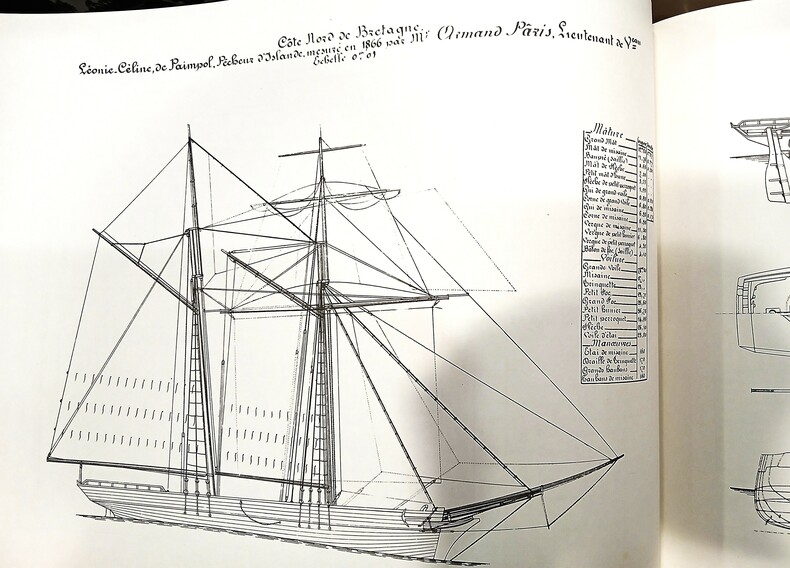 Côte Nord de Bretagne.
Léonie-Céline, de Paimpol, Pêcheur d'Islande, mesuré en 1866 par Mr Armand Pâris, Lieutenant de Veau
Echelle 0m01
Mâture
Grand Mât
Mât de misaine
Beaupré (saillie)
Mât de flèche
Petit mât d'hune
Flèche de petit perroquet
Gui de grand-voile
Corne de grand voile
Gui de misaine
Corne de misaine
Vergue de misaine
Vergue de petit hunier
Vergue de petit perroquet
Bâton de foc (saillie)
Voilure
Grande Voile
Misaine
Trinquette
Petit Foc
Grand Foc
Petit hunier
Petit perroquet
Flèche
Voile d'étai
Manœuvres
Etai de misaine
Draille de trinquette
Grands haubans
Haubans de misaine